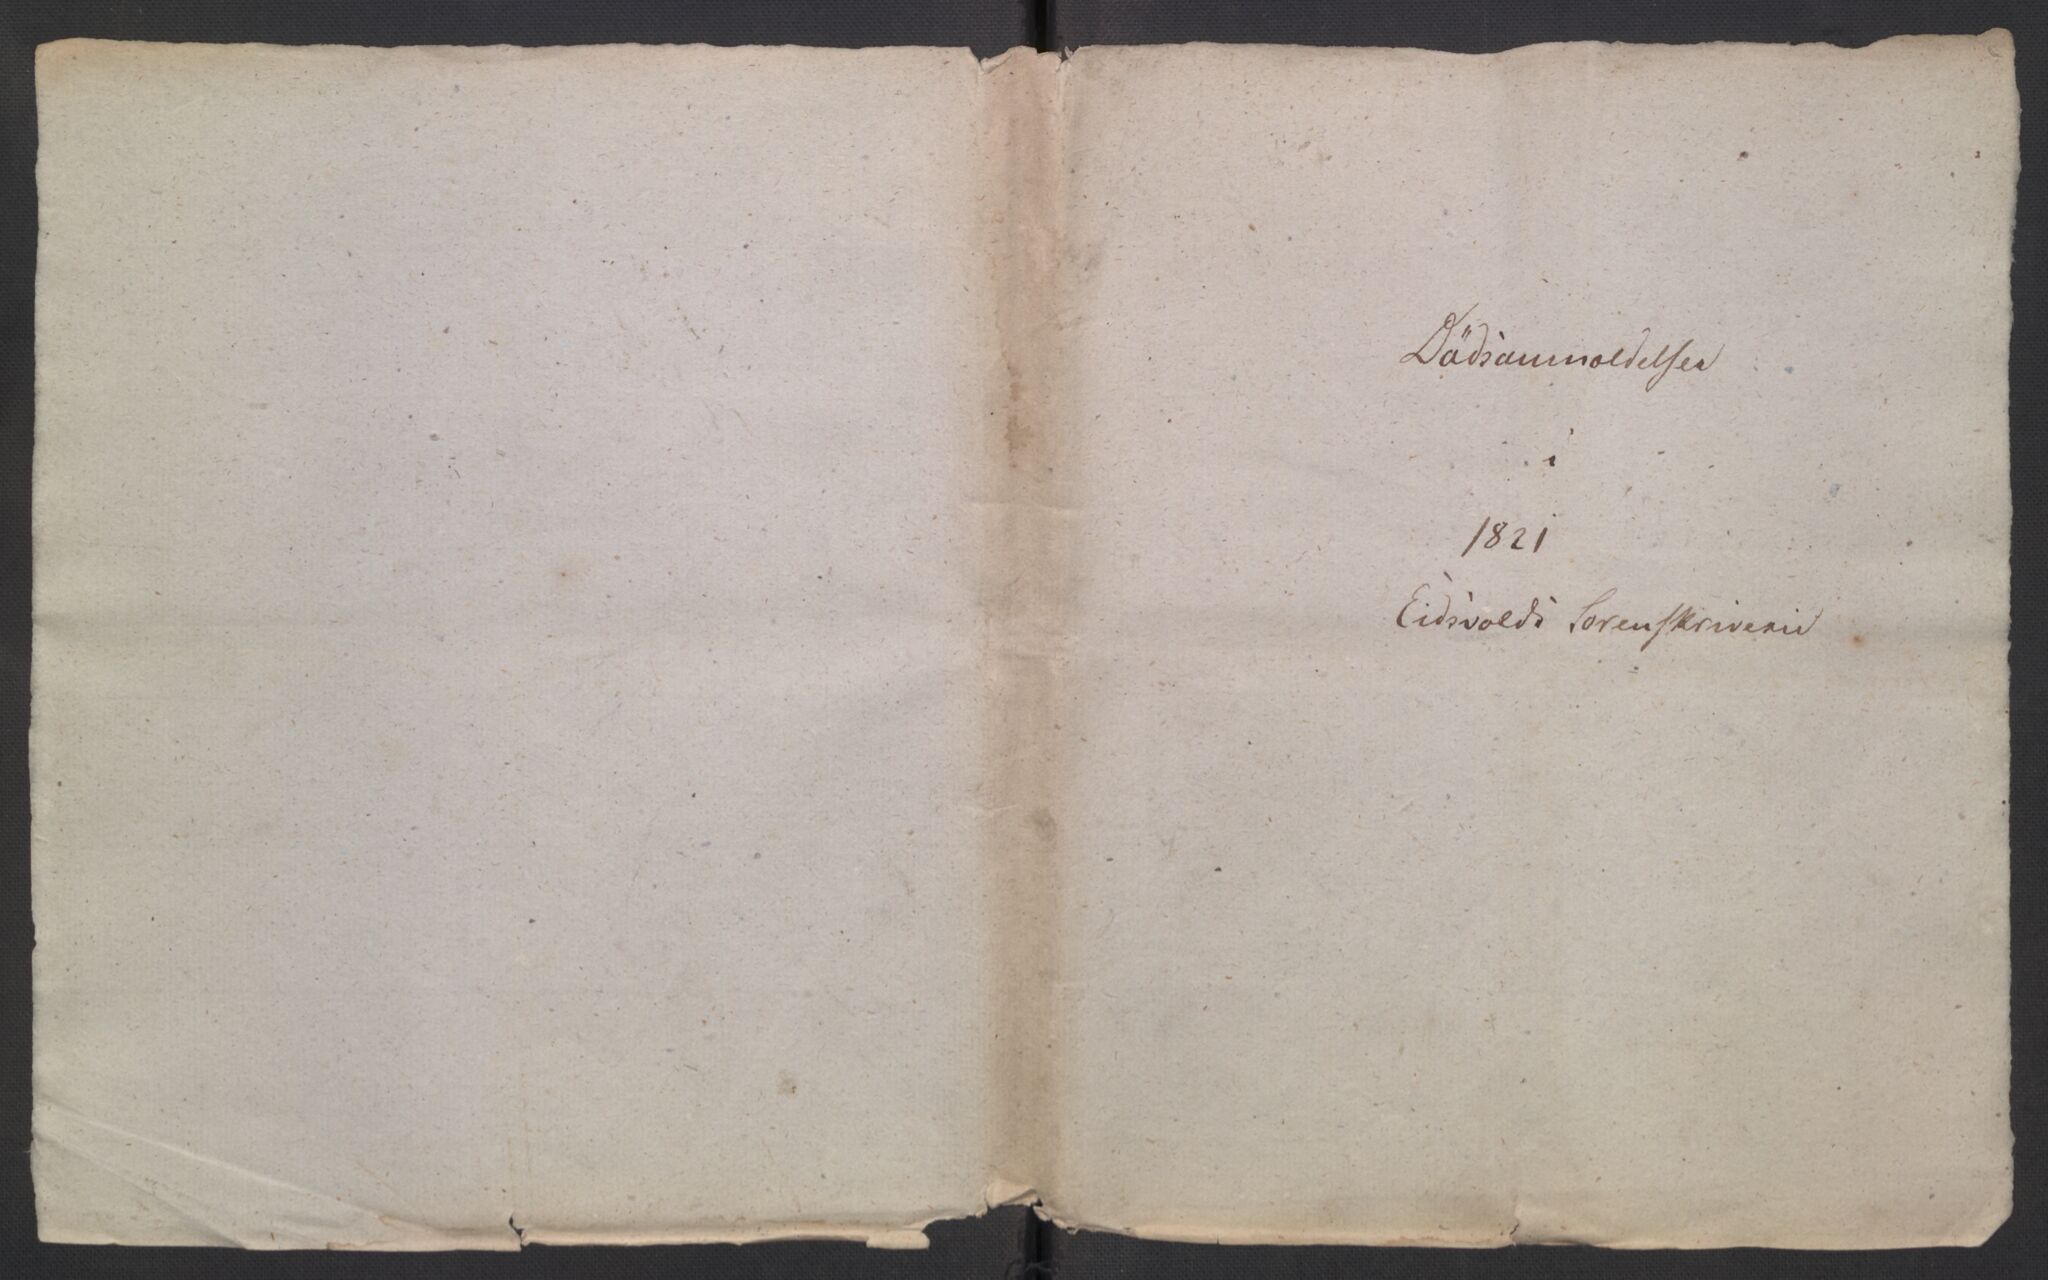 Dödsanmeldelser
i
1821
Eidsvolds Sorenskriverie